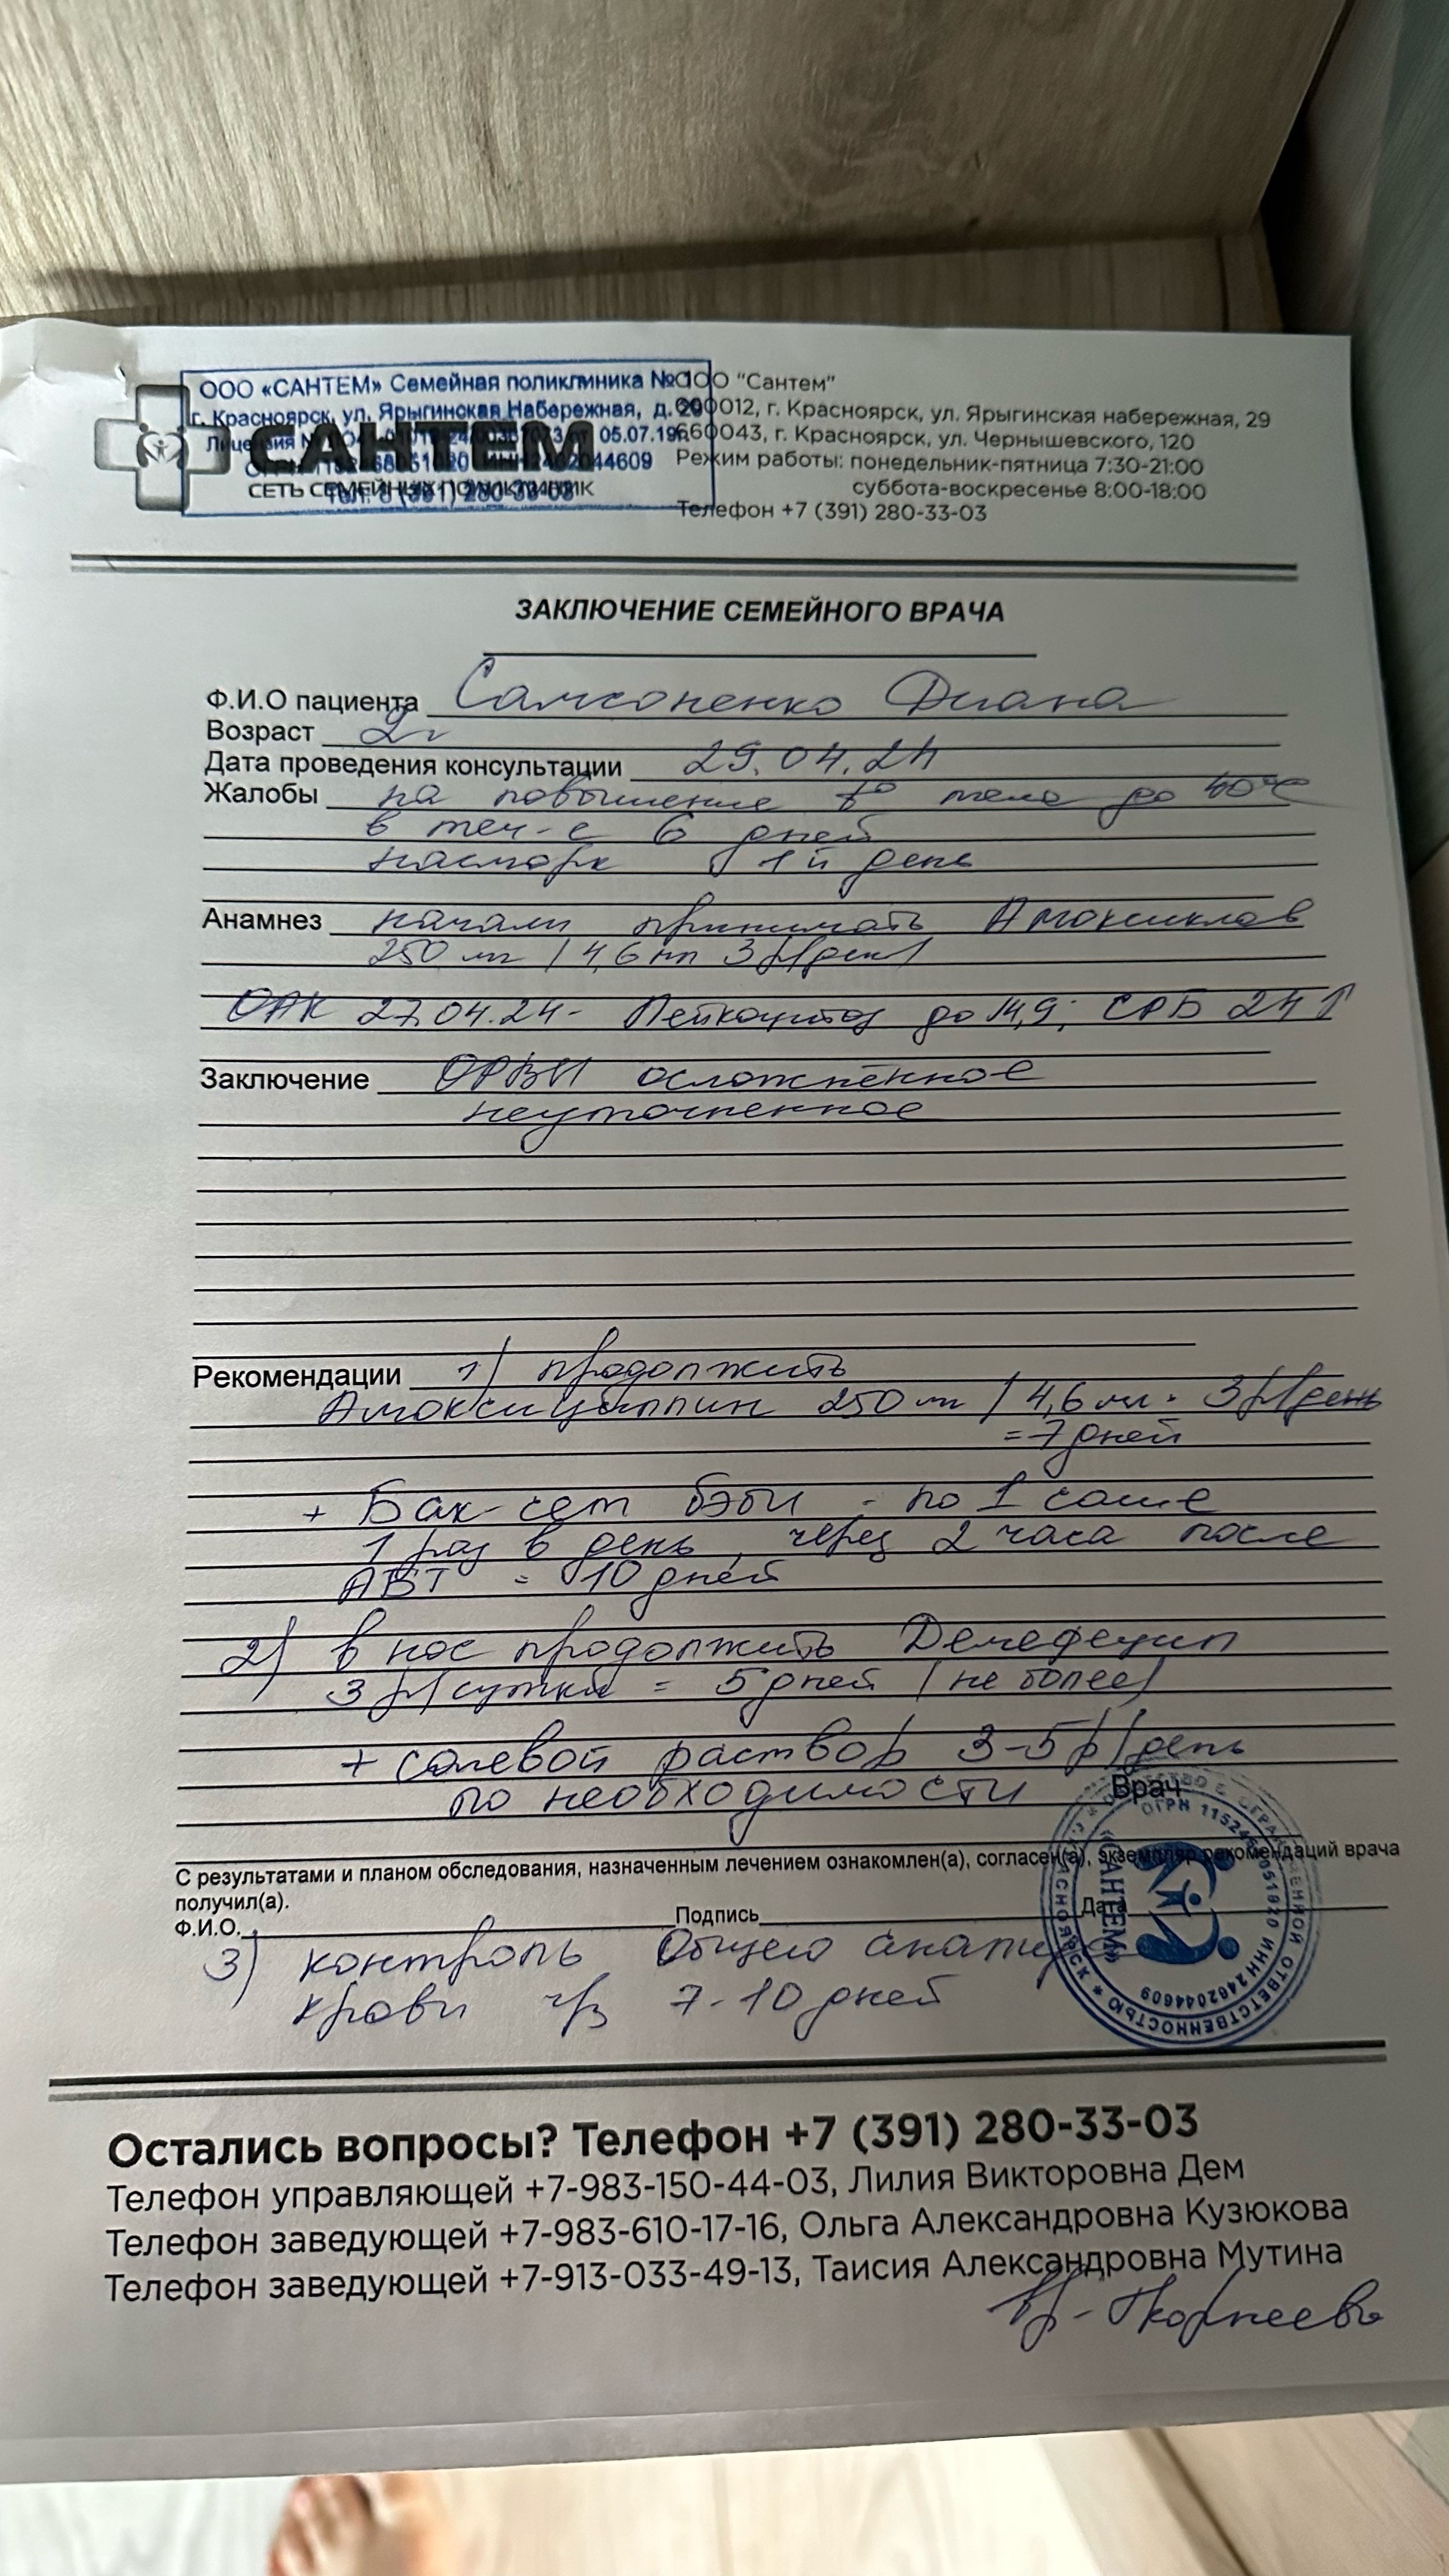 ООО «САНТЕМ» Семейная поликлиника №1
г. Красноярск, ул. Ярыгинская Набережная, д. 29
Лицензия 05.07.19г.
САНТЕМ
СЕТЬ СЕМЕЙНЫХ ПОЛИКЛИНИК
Тел. 8 (391) 280-33-03
ООО "Сантем"
660012, г. Красноярск, ул. Ярыгинская набережная, 29
660043, г. Красноярск, ул. Чернышевского, 120
Режим работы: понедельник-пятница 7:30-21:00
суббота-воскресенье 8:00-18:00
Телефон +7 (391) 280-33-03
ЗАКЛЮЧЕНИЕ СЕМЕЙНОГО ВРАЧА
Ф.И.О пациента Самсоненко Диана
Возраст 2г
Дата проведения консультации 29.04.24
Жалобы на повышение t° тела до 40°C
в теч-е 6 дней
насморк 1й день
Анамнез начали принимать Амоксиклав
250 мг / 4,6 мл 3 р/день
ОАК 27.04.24 - Лейкоцитоз до 14,9; СРБ 24 ↑
Заключение ОРВИ осложнённое
неуточненное
Рекомендации 1) продолжить
Амоксициллин 250 мг / 4,6 мл · 3 р/день
= 7 дней
+ Бак-сет бэби - по 1 саше
1 раз в день, через 2 часа после
АБТ = 10 дней
2) в нос продолжить
3 р/сутки = 5 дней (не более)
+ солевой раствор 3-5 р/день
по необходимости
Врач
С результатами и планом обследования, назначенным лечением ознакомлен(а), согласен(а), экземпляр рекомендаций врача
получил(а).
Ф.И.О. Подпись Дата
3) контроль Общего анализа
крови чрз 7-10 дней
«САНТЕМ»
ОГРН ИНН 2462044609
ОТВЕТСТВЕННОСТЬЮ * КРАСНОЯРСК
Остались вопросы? Телефон +7 (391) 280-33-03
Телефон управляющей +7-983-150-44-03, Лилия Викторовна Дем
Телефон заведующей +7-983-610-17-16, Ольга Александровна Кузюкова
Телефон заведующей +7-913-033-49-13, Таисия Александровна Мутина